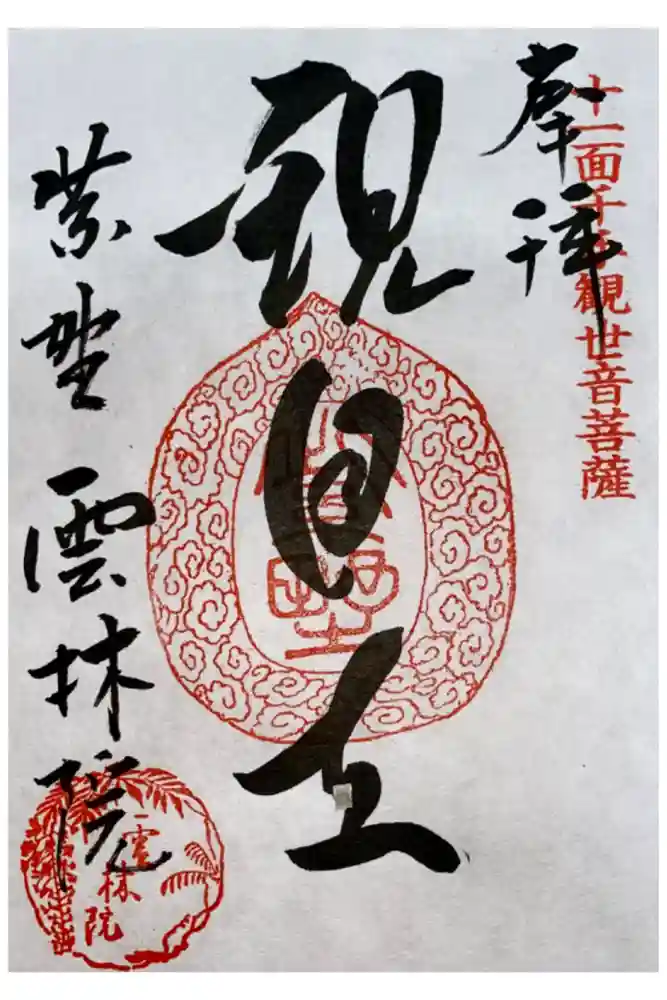 十一面千手観世音菩薩
奉拝
観自在
紫野 雲林院
雲林院